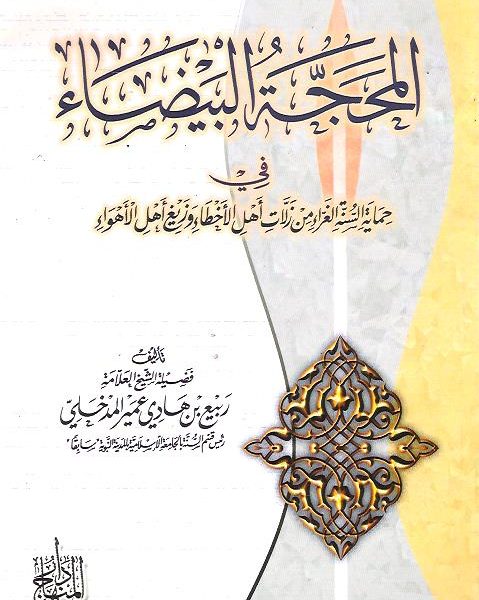 المحجة البيضاء
في
حماية السنة الغراء من زلات أهل الأخطاء وزيغ أهل الأهواء
تأليف
فضيلة الشيخ العلامة
ربيع بن هادي عمير المدخلي
رئيس قسم السنة بالجامعة الإسلامية بالمدينة النبوية "سابقا"
دار المنهاج